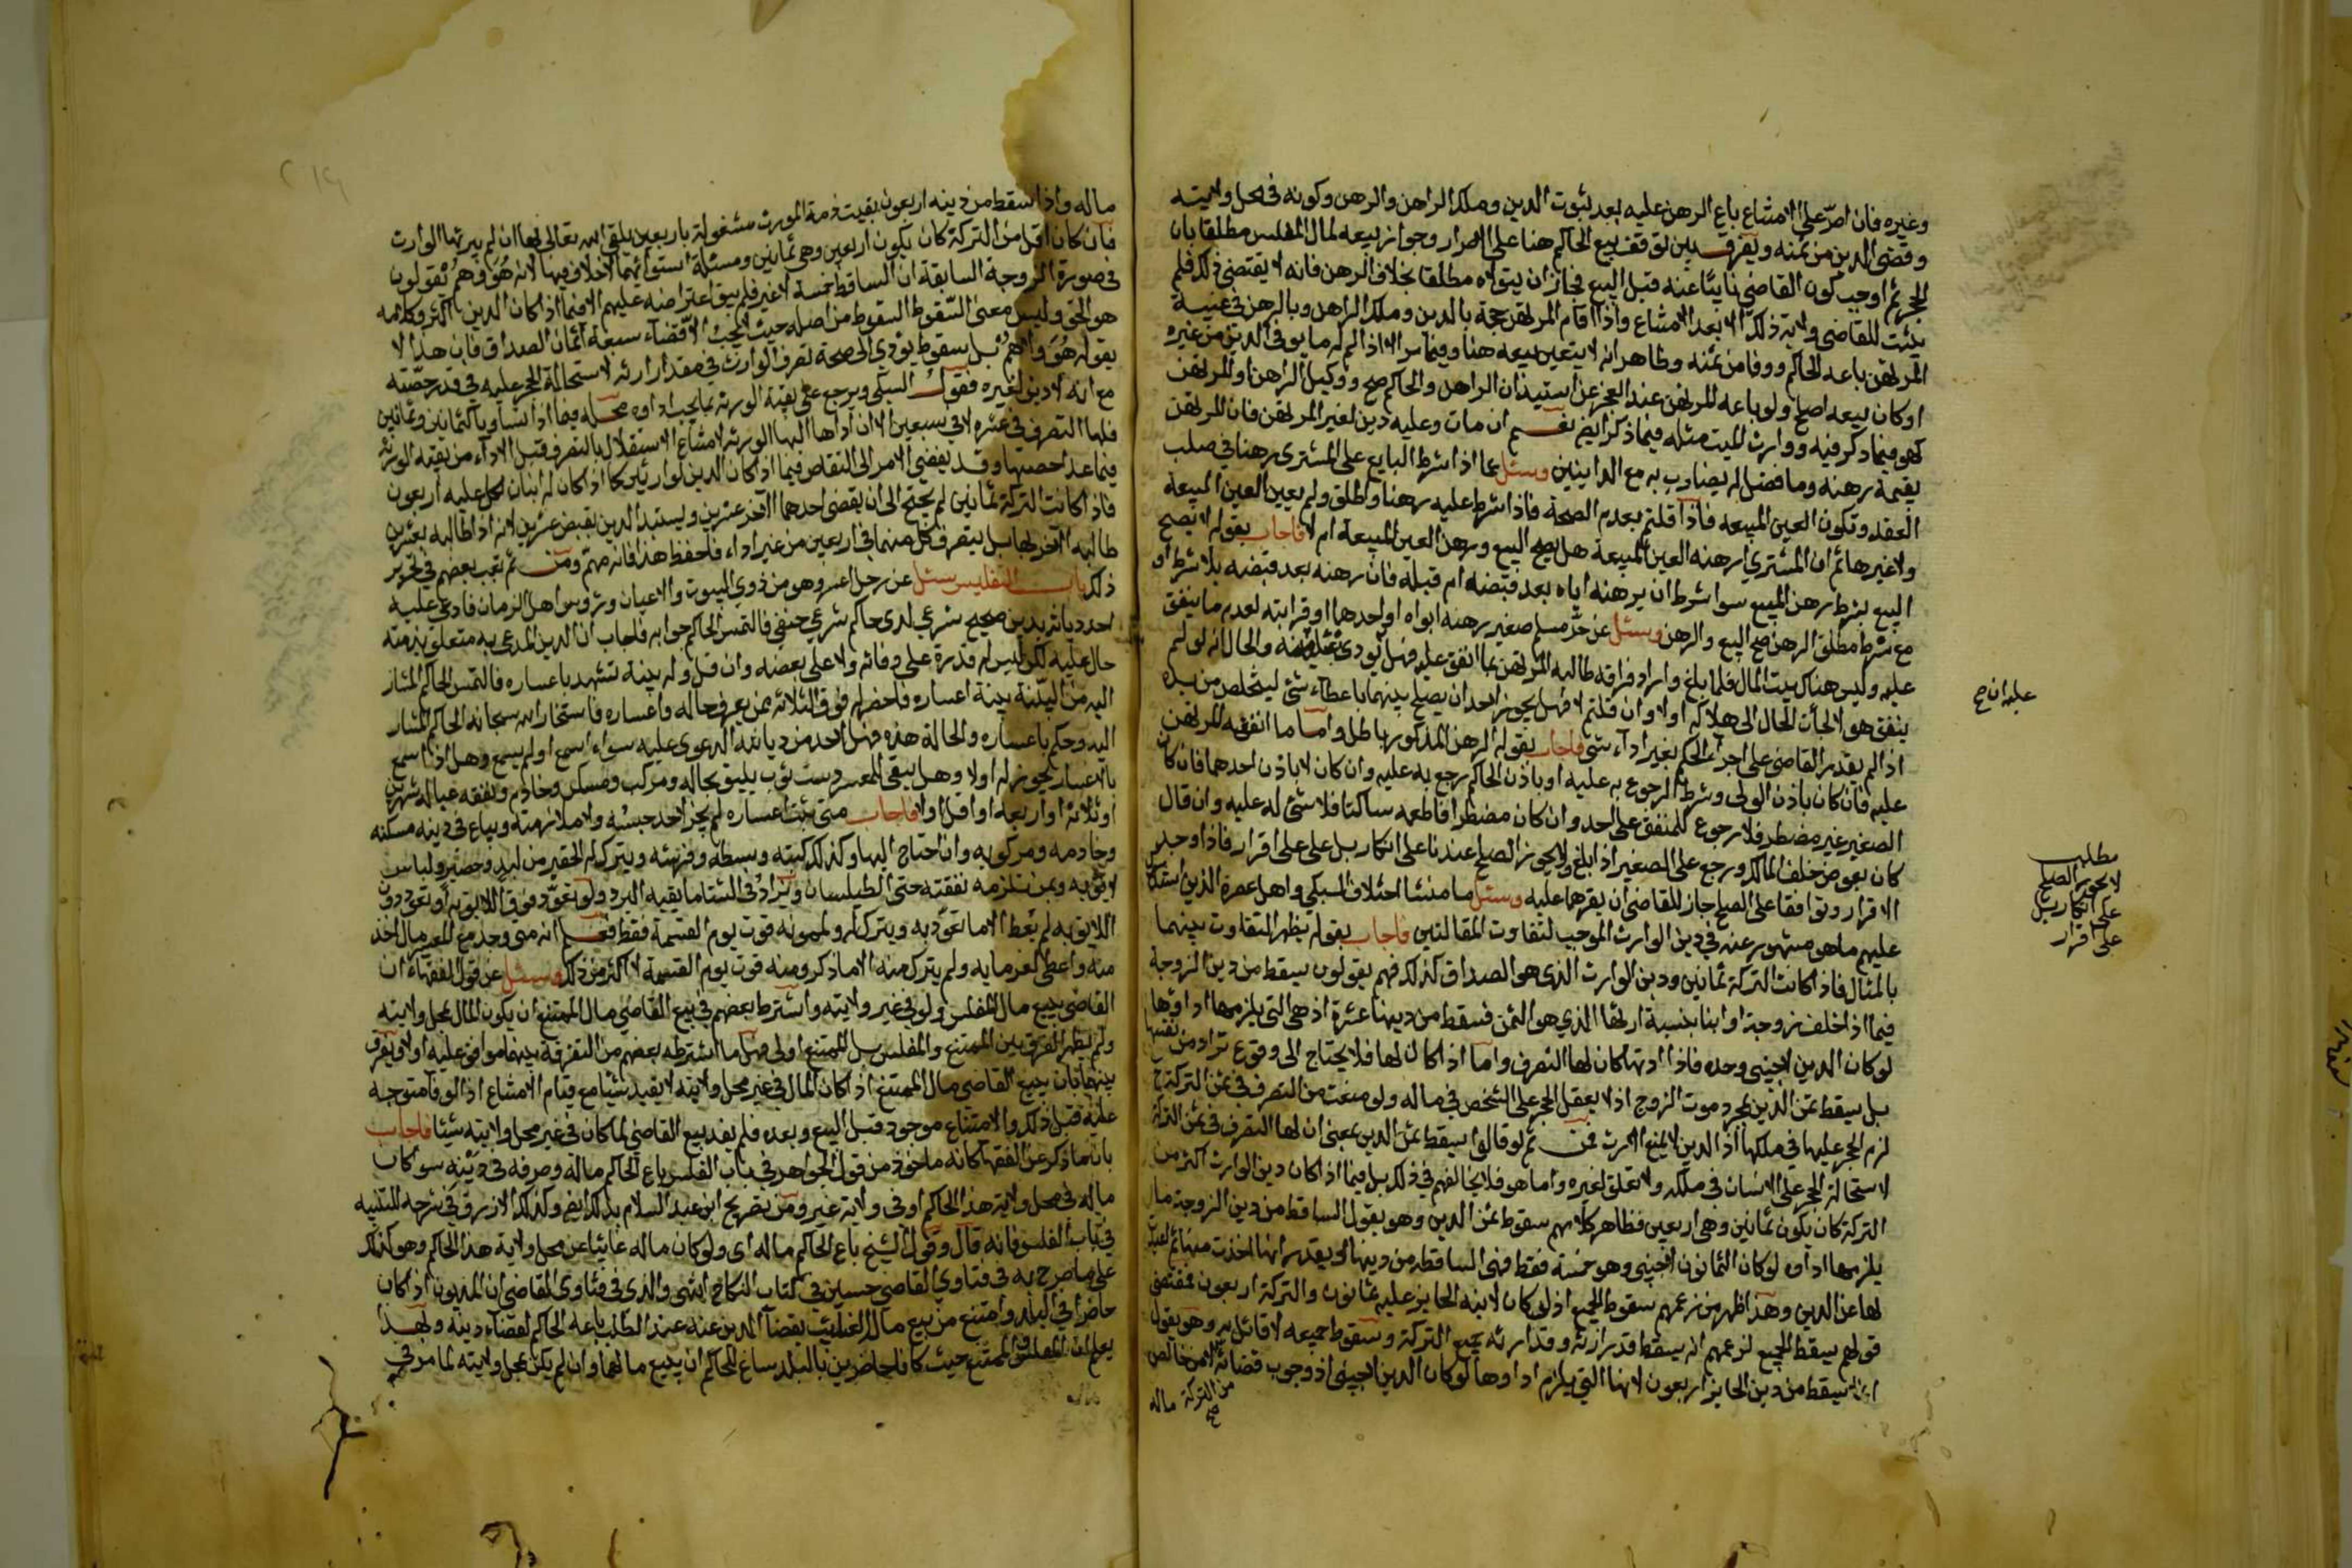 وغيره فان اصر على الامتناع باع الرهن عليه بعد ثبوت الدين وملك الراهن والرهن وكونه في محل ولايته
وقضى الدين من ثمنه ويفرق بين توقف بيع الحاكم هنا على الاصرار وجواز بيعه لمال المفلس مطلقا بان
الحجر ثم اوجب كون القاضي نايبا عنه قبل البيع فجاز ان يتولاه مطلقا بخلاف الرهن فانه لا يقتضي ذلك فلم
يثبت للقاضي ولاية ذلك الا بعد الامتناع واذا اقام المرتهن حجة بالدين وملك الراهن وبالرهن في غيبة
المرتهن باعه الحاكم ووفا من ثمنه وظاهر انه لا يتعين بيعه هنا وفيما مر الا اذا لم له ما يوفي الدين من غيره
او كان بيعه اصلح ولو باعه المرتهن عند العجز عن استيذان الراهن والحاكم صح ووكيل الراهن او المرتهن
كهو فيما ذكر فيه ووارث الميت مثله فيما ذكر ايضا نعم ان مات وعليه دين لغير المرتهن فان للمرتهن
بقيمة رهنه وما فضل له يضارب به مع الداينين وسئل عما اذا شرط البايع على المشتري رهنا في صلب
العقد وتكون العين المبيعه فاذا قلتم بعدم الصحة فاذا شرط عليه رهنا واطلق ولم يعين العين المبيعة
ولا غيرها ثم ان المشتري رهنه العين المبيعة هل يصح البيع ورهن العين المبيعة ام لا فاجاب بقوله لا يصح
البيع بشرط رهن المبيع سوا شرط ان يرهنه اياه بعد قبضه ام قبله فان رهنه بعد قبضه بلا شرط او
مع شرط مطلق الرهن صح البيع والرهن وسئل عن حر مسلم صغير رهنه ابواه او احدهما او قرابته لعدم ما ينفق
عليه وليس هناك بيت المال فلما بلغ واراد فراقه طالبه المرتهن بما انفق عليه فهل يؤدي والحال انه لو لم
ينفق هو لالجأت الحال الى هلاكه اولا وان قلتم لا فهل يجوز لاحد ان يصلح بينهما باعطاء شيئ ليتخلص من يده
اذا لم يقدر القاضي على اجراء الحكم بغير اداء شيئ فاجاب بقوله الرهن المذكور باطل واما ما انفقه المرتهن
عليه فان كان باذن الولي وشرط الرجوع به عليه او باذن الحاكم رجع به عليه وان كان لا باذن احدهما فان كان
الصغير غير مضطر فلا رجوع للمنفق على احد وان كان مضطرا فاطعمه ساكتا فلا شئ له عليه وان قال
كان بعوض خلف المالك ورجع على الصغير اذا بلغ ولا يجوز الصلح عندنا على انكار بل على اقرار فاذا وجد
الاقرار وتوافقا على الصلح جاز للقاضي ان يقرهما عليه وسئل ما منشا اختلاف السبكي واهل عصره الذين استشكل
عليهم ما هو مشهور عنه في دين الوارث الموجب لتفاوت المقالتين فاجاب بقوله يظهر التفاوت بينهما
بالمثال فاذا كانت التركة ثمانين ودين الوارث الذي هو الصداق كذلك فهم يقولون يسقط من دين الزوجة
فيما اذا خلف زوجة او ابنا بنسبة ارثها الذي هو الثمن فسقط من دينها عشرة اذ هي التي يلزمها اداؤها
لو كان الدين لاجنبي وحده فاذا ادتها كان لها التصرف واما اذا كان لها فلا يحتاج الى وقوع تراد من نفسها
بل يسقط ثمن الدين بمجرد موت الزوج اذ لا يعقل الحجر على الشخص في ماله ولو منعت من التصرف في ثمن التركة ح
لزم الحجر عليها في ملكها اذ الدين لا يمنع الارث فمن ثم لو قالوا يسقط ثمن الدين بمعنى ان لها التصرف في ثمن التركة
لاستحالة الحجر على الانسان في ملكه ولا تعلق لغيره واما هو فلا يخالفهم في ذلك بل فيما اذا كان دين الوارث اكثر من
التركة كان يكون ثمانين وهي اربعين فظاهر كلامهم سقوط ثمن الدين وهو يقول الساقط من دين الزوجة مال
يلزمها اداؤه لو كان الثمانون لاجنبي وهو خمسة فقط فهي الساقطة من دينها
لها عن الدين وهذا اظهر من زعمهم سقوط الجميع اذ لو كان لابنه الحايز عليه ثمانون والتركة اربعون فمقتضى
قولهم يسقط الجميع لزعمهم انه يسقط قدر ارثه وقدر ارثه جميع التركة وسقوط جميعه لا قائل به وهو يقول
انه يسقط من دين الحايز اربعون لانها التي يلزم اداؤها لو كان الدين لاجنبي اذ وجوب قضائه لا من خالص
من التركة صح
ماله
عليه ان صح
مطلب
لا يجوز الصلح
على انكار بل
على اقرار
ماله واذا سقط من دينه اربعون بقيت ذمة المورث مشغولة باربعين يلقى الله تعالى بها ان لم يبرئها الوارث
فان كان اقل من التركة كان يكون اربعين وهي ثمانين ومسئلة استوائهما لا خلاف فيها لانه هو وهم يقولون
في صورة الزوجة السابقة ان الساقط خمسة لا غير فلم يبق اعتراضه عليهم الا فيما اذا كان الدين اكثر وكلامه
هو الحق وليس معنى السقوط السقوط من اصله حيث لا يجب الا قضاء سبعة اثمان الصداق فان هذا لا
يقوله هو ولا هم بل سقوط يؤدي الى صحة تصرف الوارث في مقدار ارثه لاستحالة الحجر عليه في قدر حصته
مع انه لا دين لغيره فقول السبكي ويرجع على بقية الورثة بما يجب اداؤه محله فيما اذا تساويا كثمانين وثمانين
فلها التصرف في عشره لا في سبعين الا ان اداها اليها الورثة لامتناع الاستقلال بالتصرف قبل الاداء من بقية الورثة
فيما عدا حصتها وقد يفضي الامر الى التقاص فيما اذا كان الدين لوارثين كما اذا كان له ابنان لكل عليه اربعون
فاذا كانت التركة ثمانين لم يحتج الى ان يقضي احدهما الآخر عشرين ويستبد الدين بقبض عشرين لانه اذا طالبه بعشرين
طالبه الآخر بها بل يتصرف كل منهما في اربعين من غير اداء فاحفظ هذا فانه مهم ومن ثم تعب بعضهم في تحرير
ذلك باب التفليس سئل عن رجل اعسر وهو من ذوي البيوت والاعيان ورؤس اهل الزمان فادعي عليه
احد ديانه بدين صحيح شرعي لدى حاكم شرعي حنفي فالتمس الحاكم جوابه فاجاب ان الدين المدعى به متعلق بذمته
حال عليه لكن ليس له قدرة على وفائه ولا على بعضه وان قبل وله بينة تشهد باعساره فالتمس الحاكم المشار
اليه من البينة بينة اعساره فاحضر له فوق الثلاثة ممن يعرف حاله واعساره فاستخار الله سبحانه الحاكم المشار
اليه وحكم باعساره والحالة هذه فهل لاحد من ديانه الدعوى عليه سواء اسمع اولم يسمع وهل اذا سمع
بالاعسار يجوز له اولا وهل يبقى للمعسر دست ثوب يليق بحاله ومركب ومسكن وخادم ونفقه عياله شهرين
او ثلاثة او اربعه او اقل اولا فاجاب متى ثبت اعساره لم يجز لاحد حبسه ولا ملازمته ويباع في دينه مسكنه
وخادمه ومركوبه وان احتاج اليها وكذلك كتبه وبسطه وفرشه ويترك له الحقير من لبد وحصير ولباس
لائق به وبمن تلزمه نفقته حتى الطيلسان ويزاد في الشتا ما يقيه البرد ولو تعود فوق اللائق به او تعود دون
اللايق به لم يعط الا ما تعود به ويترك له ولممونه قوت يوم القسمة فقط فعلم انه متى وجد مع المعسر مال اخذ
منه واعطي لغرمايه ولم يترك منه الا ما ذكر ومنه قوت يوم القسمة لا اكثر من ذلك وسئل عن قول الفقهاء ان
القاضي يبيع مال المفلس ولو في غير ولايته واشترط بعضهم في بيع القاضي مال الممتنع ان يكون المال بمحل ولايته
ولم يظهر الفرق بين الممتنع والمفلس بل الممتنع اولى فهل ما اشترطه بعضهم من التفرقة بينهما موافق عليه اولا ويفرق
بينهما بان يبيع القاضي مال الممتنع اذا كان المال في غير محل ولايته لا يفيد شيئا مع قيام الامتناع اذ الوفا متوجه
عليه قبل ذلك والامتناع موجود قبل البيع وبعده فلم يفد بيع القاضي لما كان في غير محل ولايته شيئا فاجاب
بان ما ذكر عن الفقها كانه ماخوذ من قول الجواهر في باب الفلس باع الحاكم ماله وصرفه في دينه سوا كان
ماله في محل ولاية هذا الحاكم او في ولاية غيره ومن تصريح ابن عبد السلام بذلك ايضا وكذلك الازرق في شرحه للتنبيه
في باب الفلس فانه قال وقول الشيخ باع الحاكم ماله اى ولو كان ماله غائبا عن محل ولاية هذا الحاكم وهو كذلك
على ما صرح به في فتاوي القاضي حسين في كتاب النكاح انتهى والذي في فتاوى القاضي ان المديون اذا كان
حاضرا في البلد وامتنع من بيع ماله الغائب بقضاء الدين عنه عند الطلب باعه الحاكم لقضاء دينه وبهذا
يعلم ان المفلس والممتنع حيث كانا حاضرين بالبلد ساغ للحاكم ان يبيع مالهما وان لم يكن بمحل ولايته لما مر في